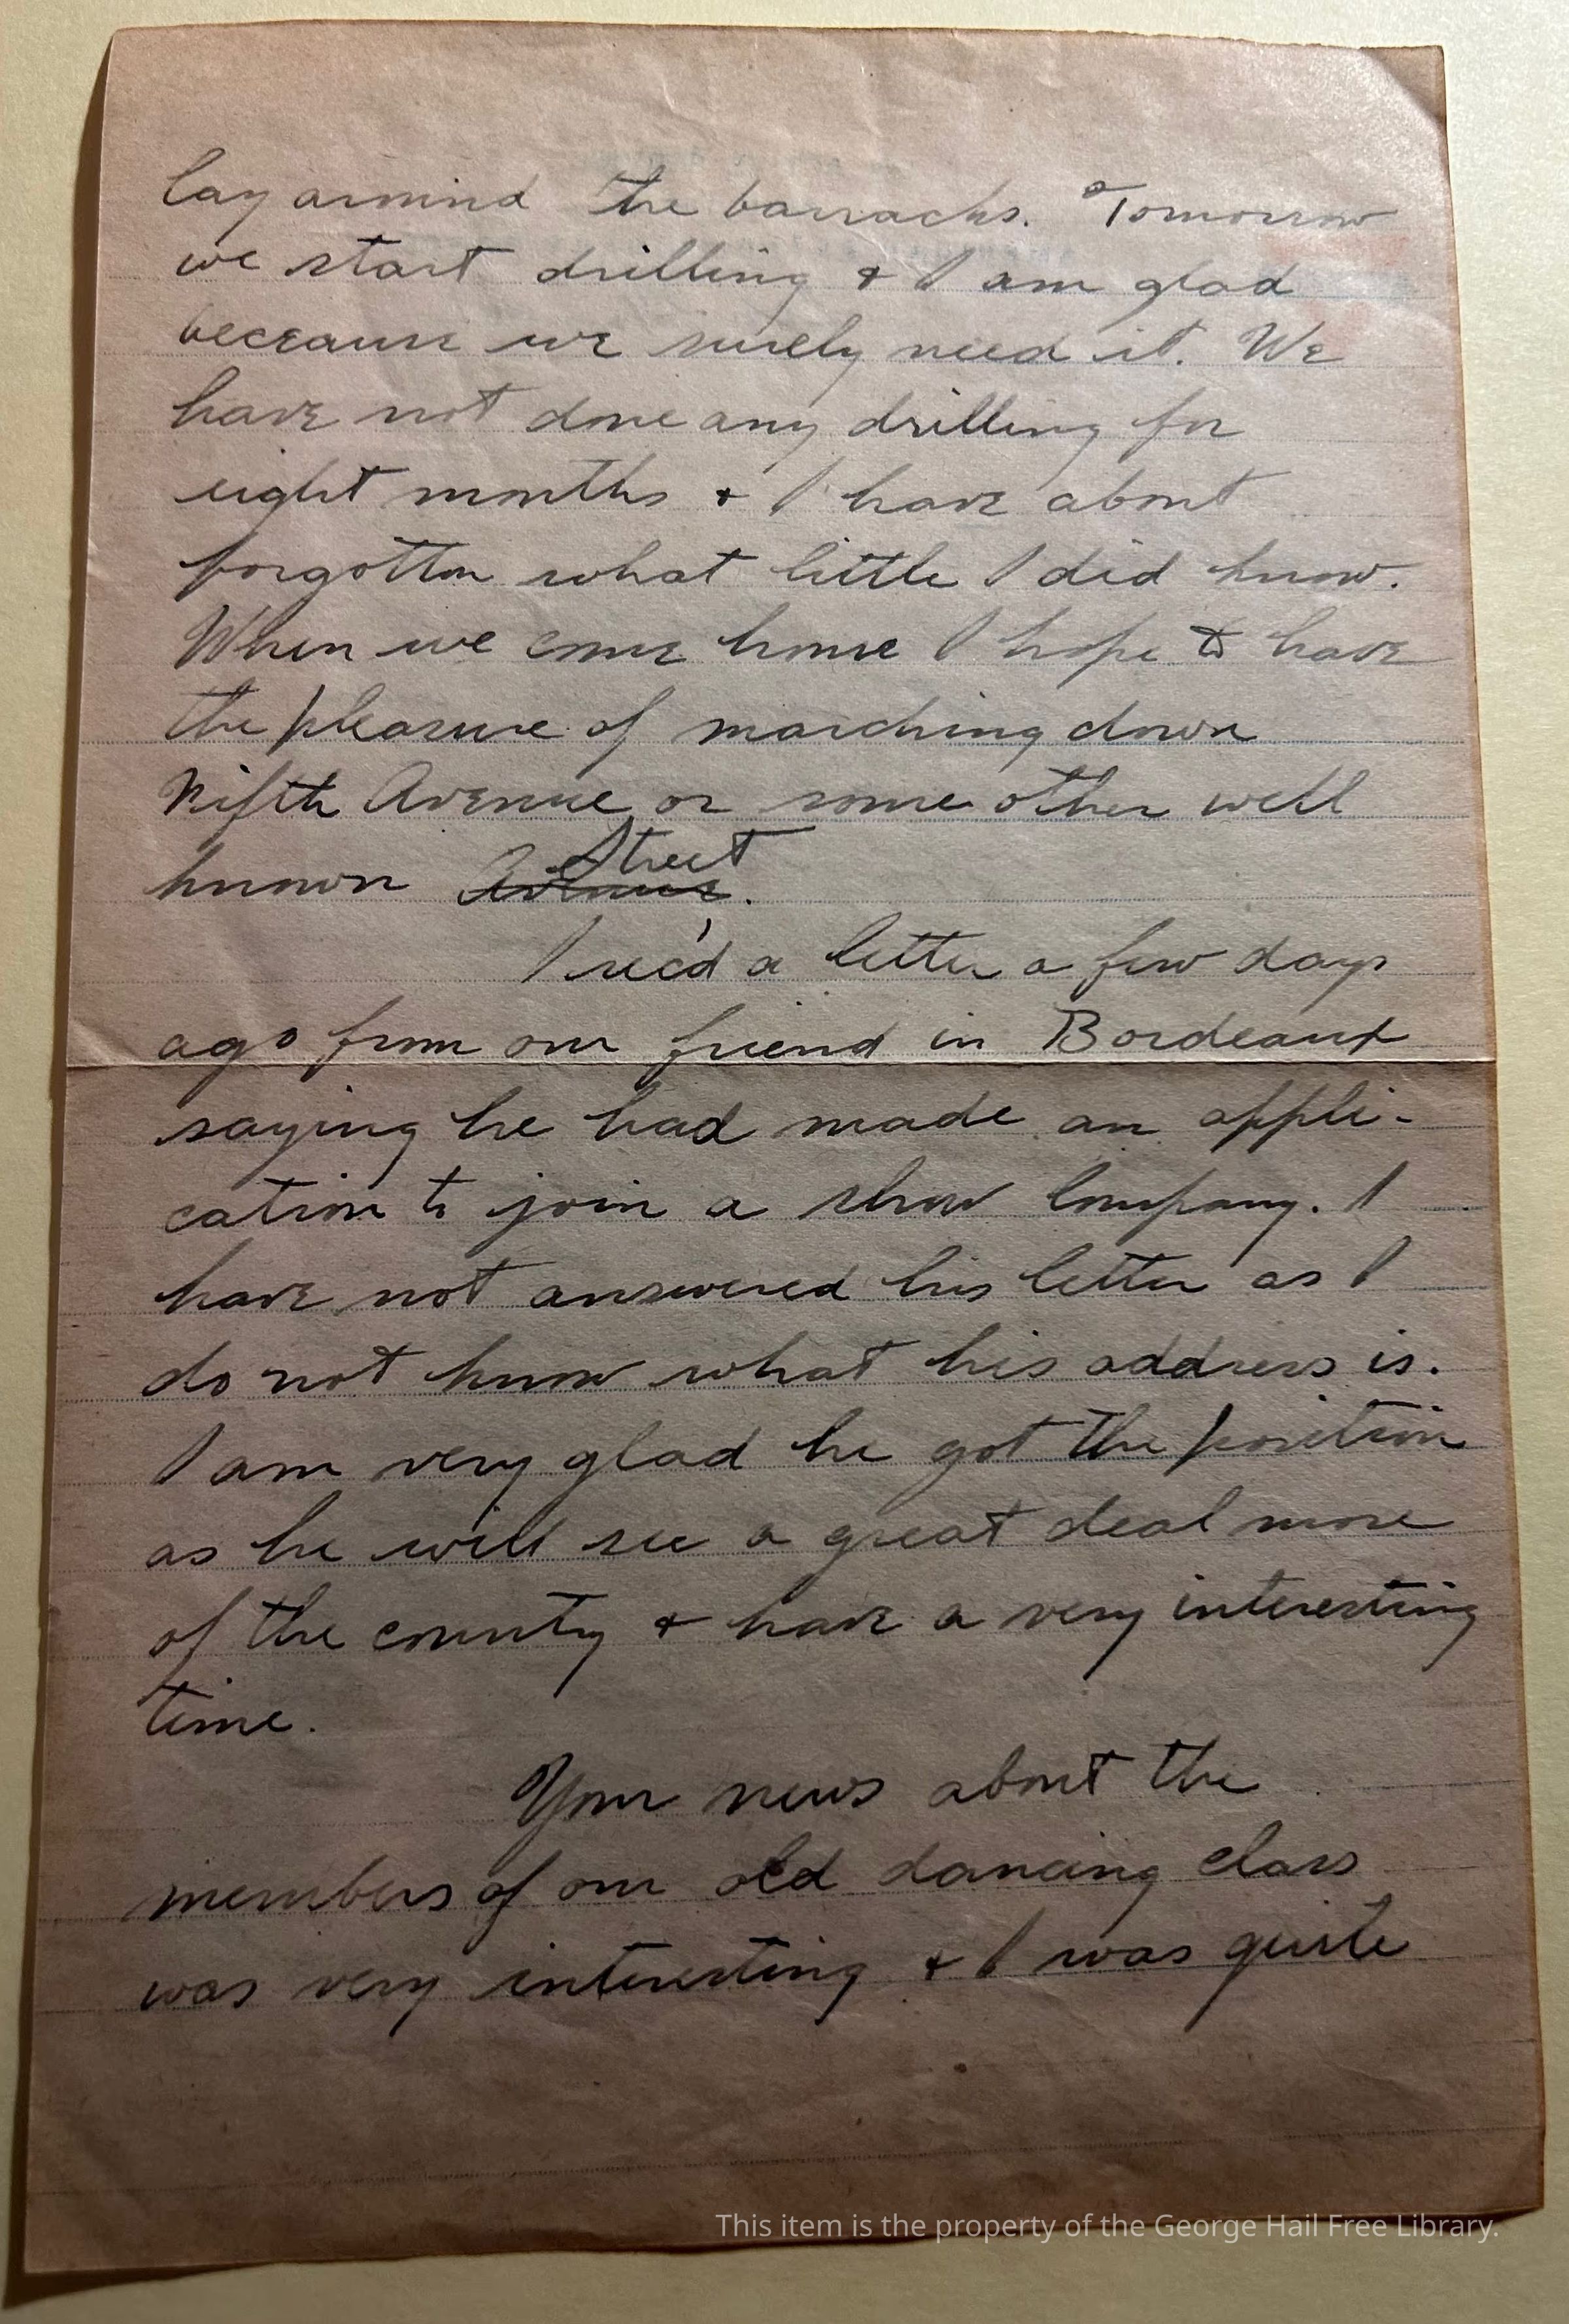 lay around the barracks. Tomorrow
we start drilling & I am glad
beceause we surely need it. We
have not done any drilling for
eight months & I have about
forgotten what little I did know.
When we come home I hope to have
the pleasure of marching down
Fifth Avenue or some other well
known ~~Avenue~~ Street.
I rec'd a letter a few days
ago from our friend in Bordeaux
saying he had made an appli-
cation to join a show Company. I
have not answered his letter as I
do not know what his address is.
I am very glad he got the position
as he will see a great deal more
of the country & have a very interesting
time.
Your news about the
members of our old dancing class
was very interesting & I was quite
This item is the property of the George Hail Free Library.